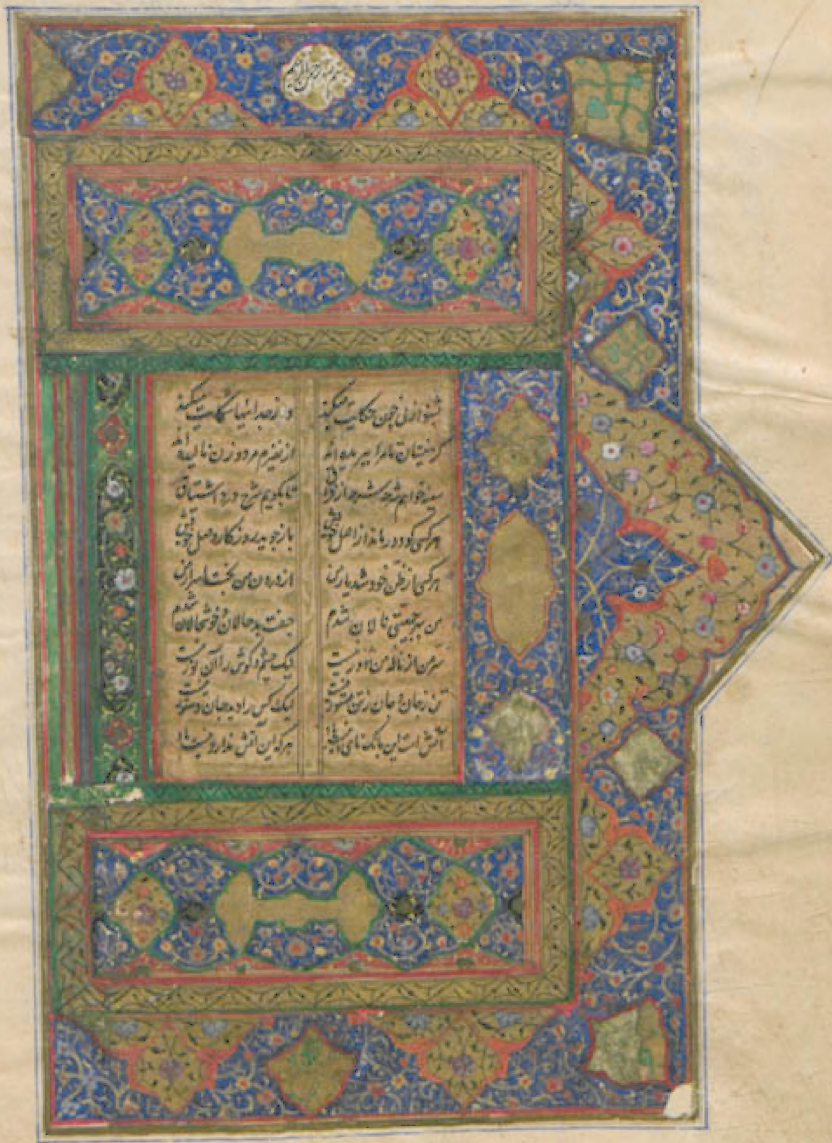 بسم الله الرحمن الرحیم
بشنو از نی چون حکایت میکند وز جدائیها شکایت میکند
کز نیستان تا مرا ببریده اند از نفیرم مرد و زن نالیده اند
سینه خواهم شرحه شرحه از فراق تا بگویم شرح درد اشتیاق
هر کسی کو دور ماند از اصل خویش باز جوید روزکار وصل خویش
هر کسی از ظن خود شد یار من از درون من نجست اسرار من
من بهر جمعیتی نالان شدم جفت بدحالان و خوشحالان شدم
سر من از ناله من دور نیست لیک چشم و گوش را آن نور نیست
تن ز جان و جان ز تن مستور نیست لیک کس را دید جان دستور نیست
آتش است این بانک نای و نیست باد هر که این آتش ندارد نیست باد